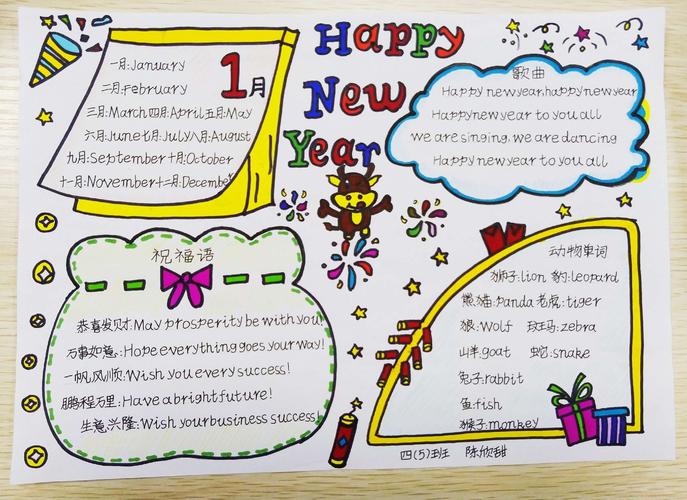 Happy
New
Year
1月
一月:January
二月:February
三月:March四月:April五月:May
六月:June七月:July八月:August
九月:September十月:October
十一月:November十二月:December
歌曲
Happy new year,happy new year
Happy new year to you all
we are singing, we are dancing
Happy new year to you all
祝福语
恭喜发财:May prosperity be with you!
万事如意:Hope everything goes your way!
一帆风顺:Wish you every success!
鹏程万里:Have a bright future!
生意兴隆:Wish your business success!
动物单词
狮子:lion 豹:leopard
熊猫:panda 老虎:tiger
狼:wolf 斑马:zebra
山羊:goat 蛇:snake
兔子:rabbit
鱼:fish
猴子:monkey
四(5)班 陈欣甜